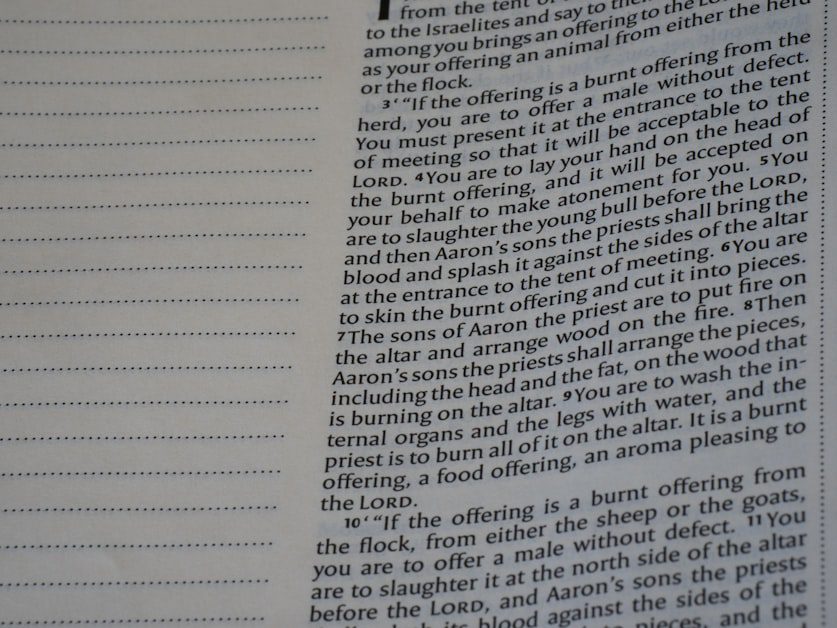 from the tent of
to the Israelites and say to them
among you brings an offering to the Lord
as your offering an animal from either the herd
or the flock.
3‘“If the offering is a burnt offering from the
herd, you are to offer a male without defect.
You must present it at the entrance to the tent
of meeting so that it will be acceptable to the
LORD. 4You are to lay your hand on the head of
the burnt offering, and it will be accepted on
your behalf to make atonement for you. 5You
are to slaughter the young bull before the LORD,
and then Aaron’s sons the priests shall bring the
blood and splash it against the sides of the altar
at the entrance to the tent of meeting. 6You are
to skin the burnt offering and cut it into pieces.
7The sons of Aaron the priest are to put fire on
the altar and arrange wood on the fire. 8Then
Aaron’s sons the priests shall arrange the pieces,
including the head and the fat, on the wood that
is burning on the altar. 9You are to wash the in-
ternal organs and the legs with water, and the
priest is to burn all of it on the altar. It is a burnt
offering, a food offering, an aroma pleasing to
the LORD.
10‘“If the offering is a burnt offering from
the flock, from either the sheep or the goats,
you are to offer a male without defect. 11You
are to slaughter it at the north side of the altar
before the LORD, and Aaron’s sons the priests
its blood against the sides of the
pieces, and the